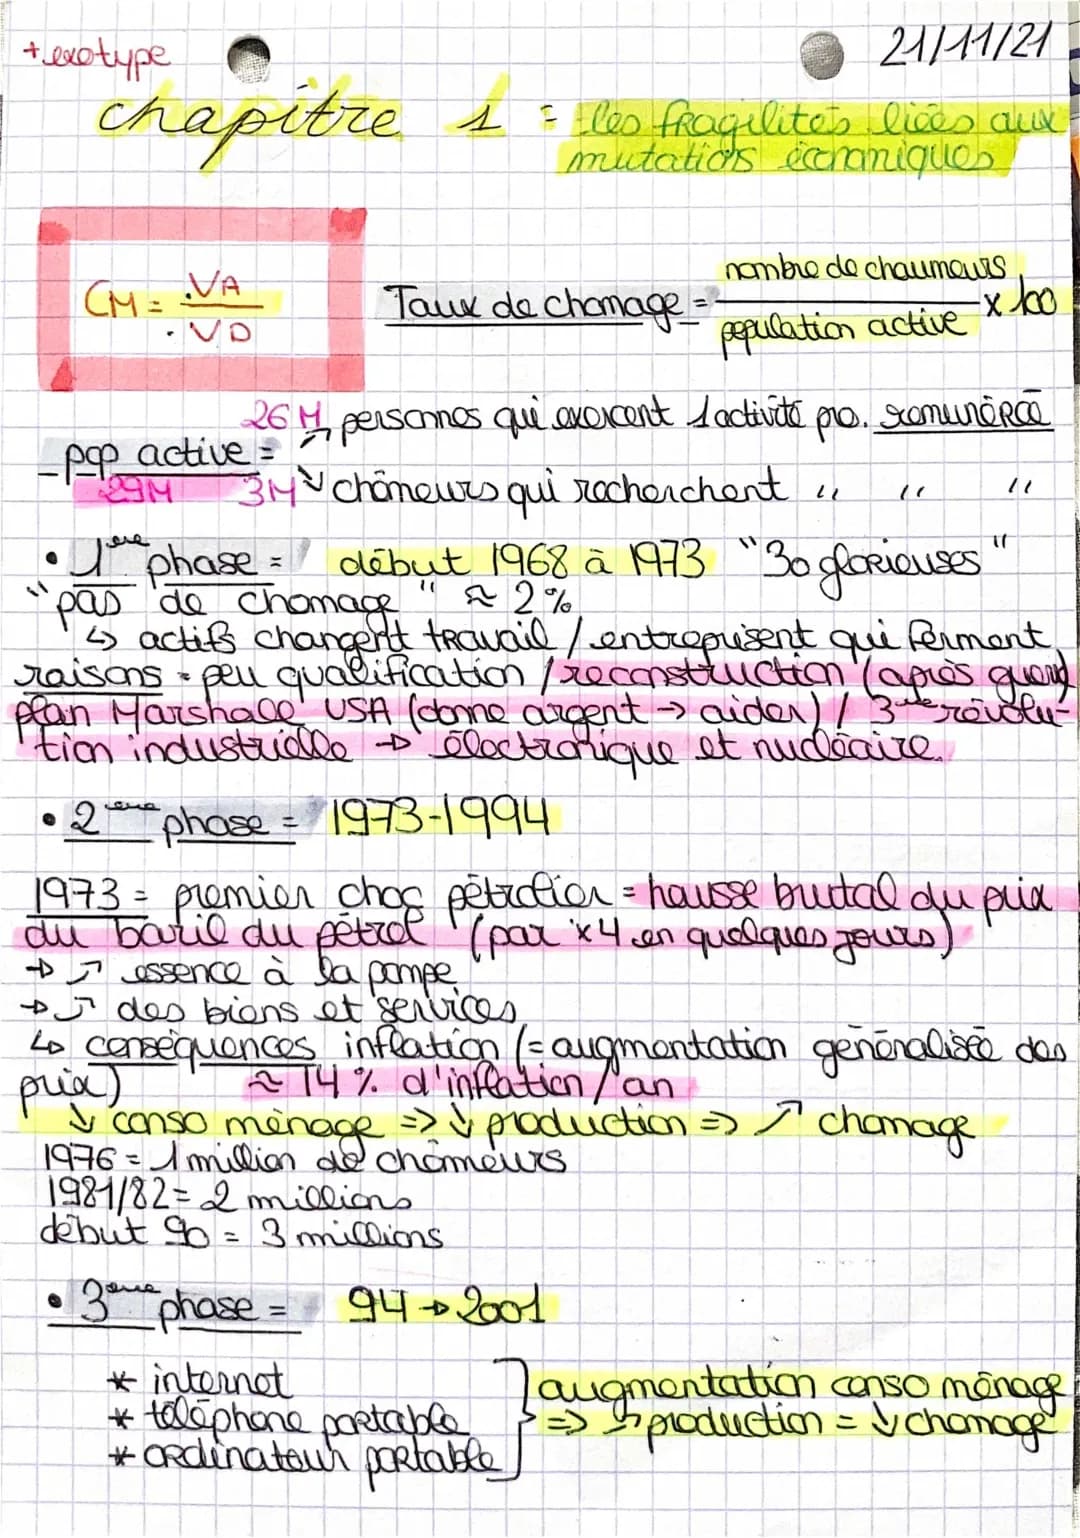 + exotype
21/11/21
chapitre 1 = les fragilités liées aux
mutations économiques
CM = VA
VD
Taux de chomage = nombre de chaumeurs
population active x 100
26 M personnes qui exercent 1 activité pro. remunérée
- pop active =
29M 3M ↘ chômeurs qui recherchent " " "
• 1ere phase = début 1968 à 1973 "30 glorieuses"
"pas de chomage" ≈ 2%
↳ actifs changent travail / entreprisent qui ferment
raisons = peu qualification / reconstruction (après guerre)
plan Marshall USA (donne argent → aider) / 3eme révolu-
tion industrielle → électronique et nucléaire.
• 2eme phase = 1973-1994
1973 = premier choc pétrolier = hausse brutal du prix
du baril du pétrol (par x4 en quelques jours)
→ ↗ essence à la pompe
→ ↗ des biens et services
↳ conséquences inflation (= augmentation généralisée des
prix) ≈ 14 % d'inflation / an
↓ conso ménage => ↓ production => ↗ chomage
1976 = 1 million de chômeurs
1981/82 = 2 millions
début 90 = 3 millions
• 3eme phase = 94 → 2001
* internet
* téléphone portable
* ordinateur portable
augmentation conso ménage
=> ↗ production = ↓ chomage